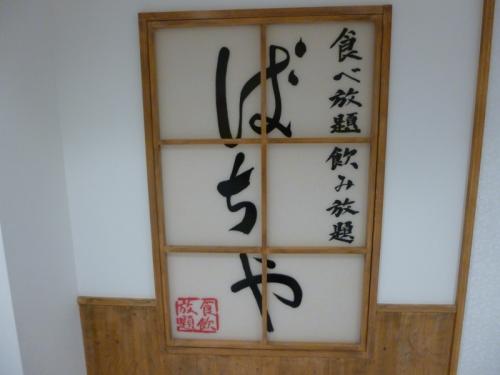 食べ放題 飲み放題
ばちや
食飲
放題